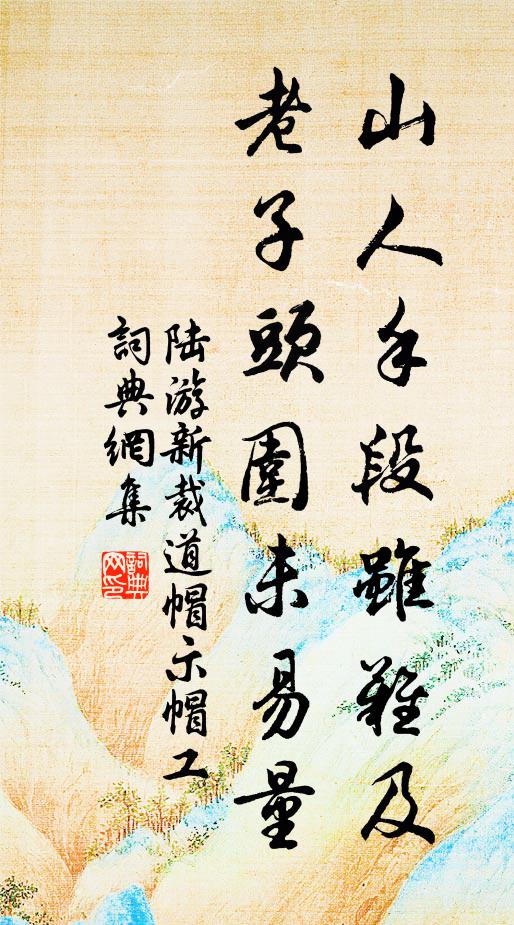 山人手段雖難及
老子頭圍未易量
陆游新裁道帽示帽工
詞典網集
詞典网印